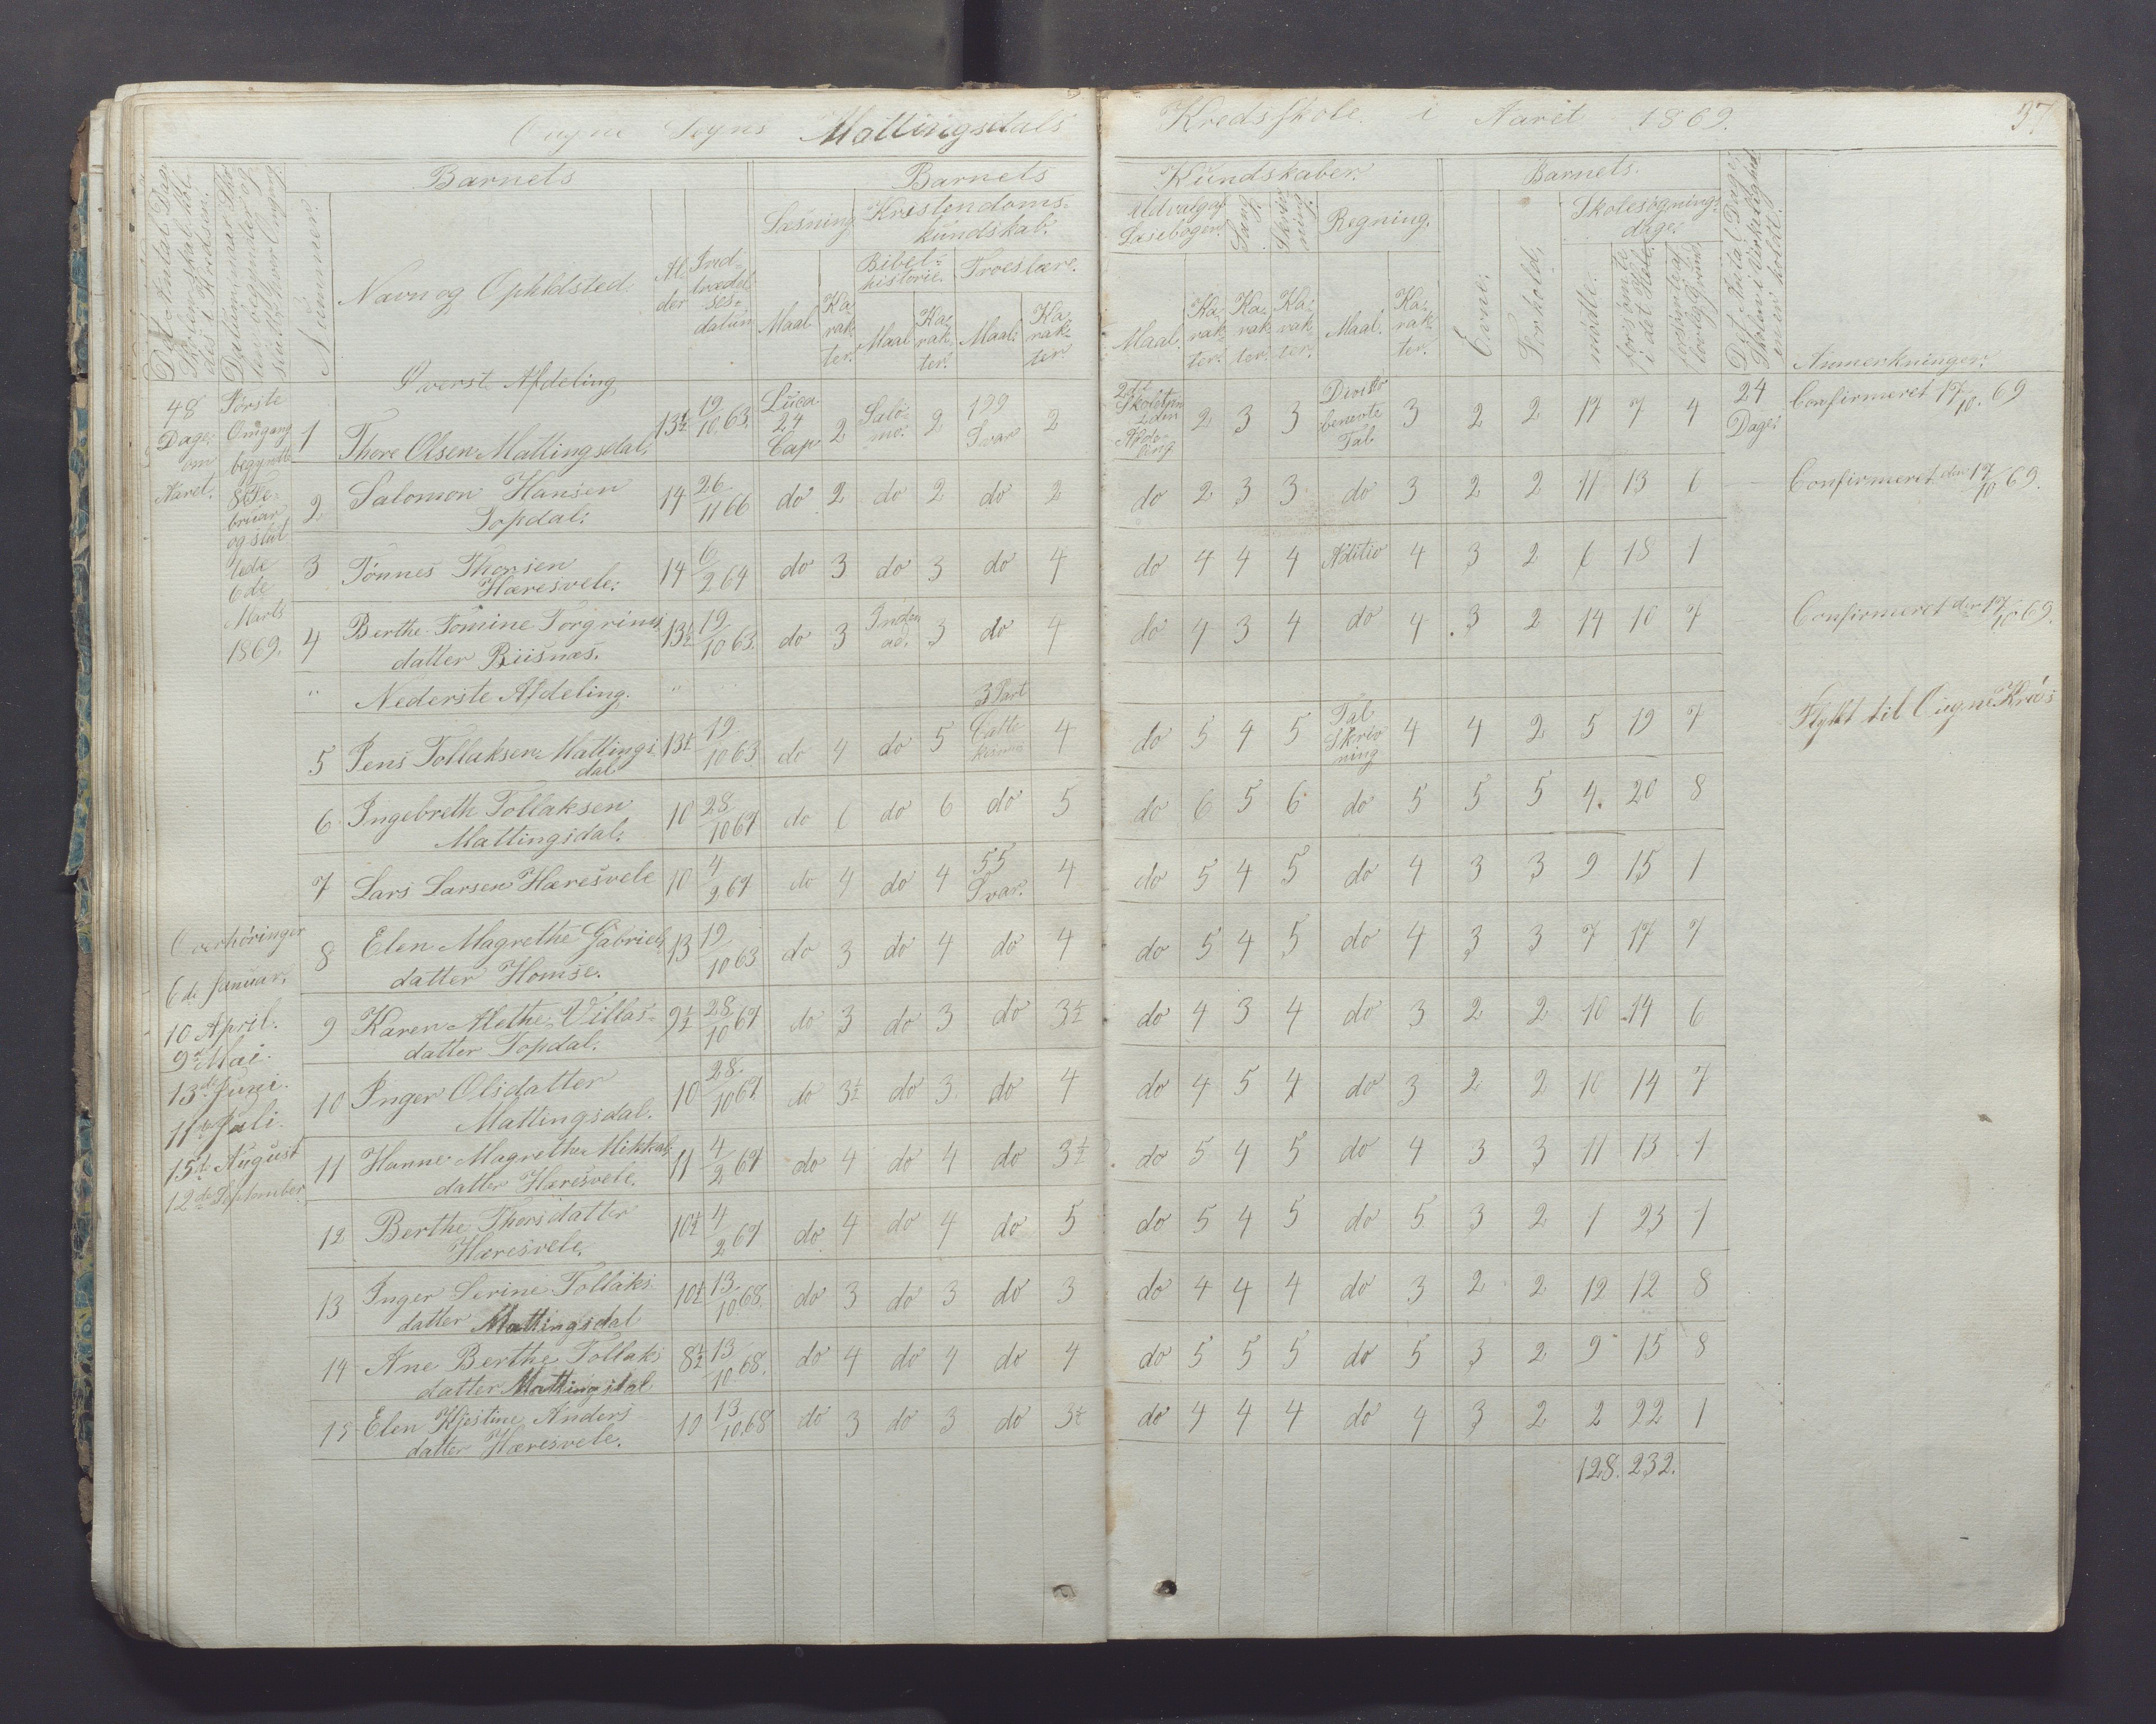 Ougne Sogns Mattingsdals Kredsskole i Aaret 1869. 37
Det Antal Dage Skolen skal holdes i Kredsen.
Datum naar Skolen begynder og sluttes hver Omgang.
Nummer.
Barnets
Navn og Opholdsted.
Alder
Indtrædelsesdatum
Barnets Kundskaber.
Læsning
Kristendomskundskab.
Bibelhistorie. Troeslære.
Udvalg af Læsebogen. Sang. Skrivning. Regning.
Maal Karakter. Maal Karakter. Maal. Karakter
Maal. Karakter. Karakter. Karakter. Maal. Karakter.
Barnets.
Evne. Forhold.
Skolesøgningsdage.
mødte. forsømte i det Hele. forsømte af lovlig Grund
Det Antal Dage Skolen i Virkeligheden er holdt.
Anmerkninger.
48 Dage om Aaret.
Første Omgang begyndte 8de Februar og sluttede 6de Marts 1869.
Øverste Afdeling
1 Thore Olsen Mattingsdal. 13½ 19/10 63. Luca 24 Cap 2 Salomo. 2 199 Svar 2 2det Skoletrin 2den Afdeling 2 3 3 Divis benevnte Tal 3 2 2 17 7 4 24 Dage. Confirmeret 17/10. 69
2 Salomon Hansen Topdal. 14 26/11 66 do 2 do 2 do 2 do 2 3 3 do 3 2 2 11 13 6 Confirmeret den 17/10 69.
3 Tønnes Thorsen Hæresvele. 14 6/2 64 do 3 do 3 do 4 do 4 4 4 Aditio 4 3 2 6 18 1
4 Berthe Tomine Torgrimsdatter Biisnæs. 13½ 19/10 63. do 3 3 do 4 do 4 3 4 do 4 3 2 14 10 7 Confirmeret den 17/10 69.
" Nederste Afdeling. "
5 Jens Tollaksen Mattingsdal 13½ 19/10 63 do 4 do 5 3 Part Cattekismus 4 do 5 4 5 Tal Skrivning 4 4 2 5 19 7 Flyttt til Ougne Kreds
6 Ingebreth Tollaksen Mattingsdal. 10 28/10 67 do 6 do 6 do 5 do 6 5 6 do 5 5 5 4. 20 8
7 Lars Larsen Hæresvele 10 4/2 67 do 4 do 4 55 Svar. 4 do 5 4 5 do 4 3 3 9 15 1
8 Elen Magrethe Gabrielsdatter Homse. 13 19/10 63 do 3 do 4 do 4 do 5 4 5 do 4 3 3 7 17 7
9 Karen Alethe Villasdatter Topdal. 9½ 28/10 67 do 3 do 3 do 3½ do 4 3 4 do 3 2 2 10 14 6
10 Inger Olsdatter Mattingsdal. 10 28/10 67. do 3½ do 3 do 4 do 4 5 4 do 3 2 2 10 14 7
11 Hanne Magrethe Mikkalsdatter Hæresvele. 11 4/2 67 do 4 do 4 do 3½ do 5 4 5 do 4 3 3 11 13 1
12 Berthe Thorsdatter Hæresvele. 10½ 4/2 67 do 4 do 4 do 5 do 5 4 5 do 5 3 2 1 23 1
13 Inger Serine Tollaksdatter Mattingsdal 10½ 13/10 68. do 3 do 3 do 3 do 4 4 4 do 3 2 2 12 12 8
14 Ane Berthe Tollaksdatter Mattingsdal 8½ 13/10 68. do 4 do 4 do 4 do 5 5 5 do 5 3 2 9 15 8
15 Elen Kjestine Andersdatter Hæresvele. 10 13/10 68 do 3 do 3 do 3½ do 4 4 4 do 4 3 2 2 22 1
128. 232.
Overhøringer
6de Januar.
10 April.
9de Mai.
13de Juni.
11te Juli.
15de August
12de September.